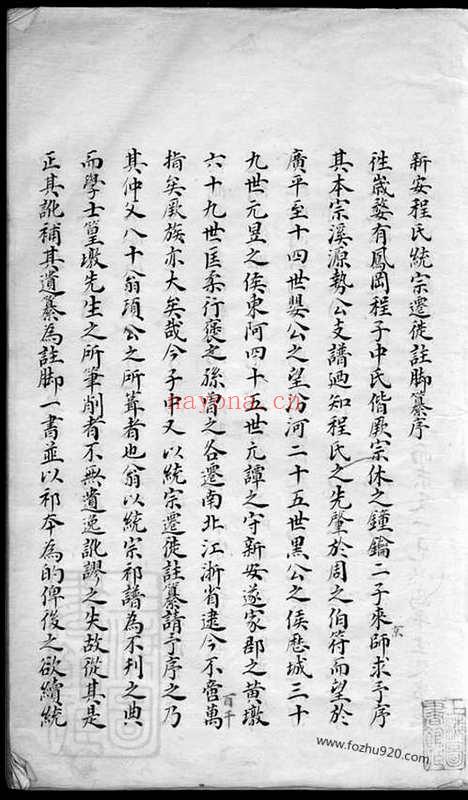 新安程氏統宗遷徙註脚纂序
徃歲婺有鳳岡程子中氏偕厥宗休之鍾鑰二子來師求予序
其本宗溪源勢公支譜迺知程氏之先肇於周之伯符而望於
廣平至十四世嬰公之望 河二十五世黑公之侯歷城三十
九世元昱之侯東阿四十五世元譚之守新安遂家郡之黄墩
六十九世匡柔行褒之孫 之各遷南北江浙省逺今不啻萬
百千
指矣厥族亦大矣哉今子中又以統宗遷徙註纂請予序之乃
其仲父八十翁項公之所葺者也翁以統宗祁譜為不刋之典
而學士篁墩先生之所筆削者不無遺逸訛謬之失故從其是
正其訛補其遺纂為註脚一書並以祁本為的俾後之欲續統
hayona.cn
www.fozhu920.com